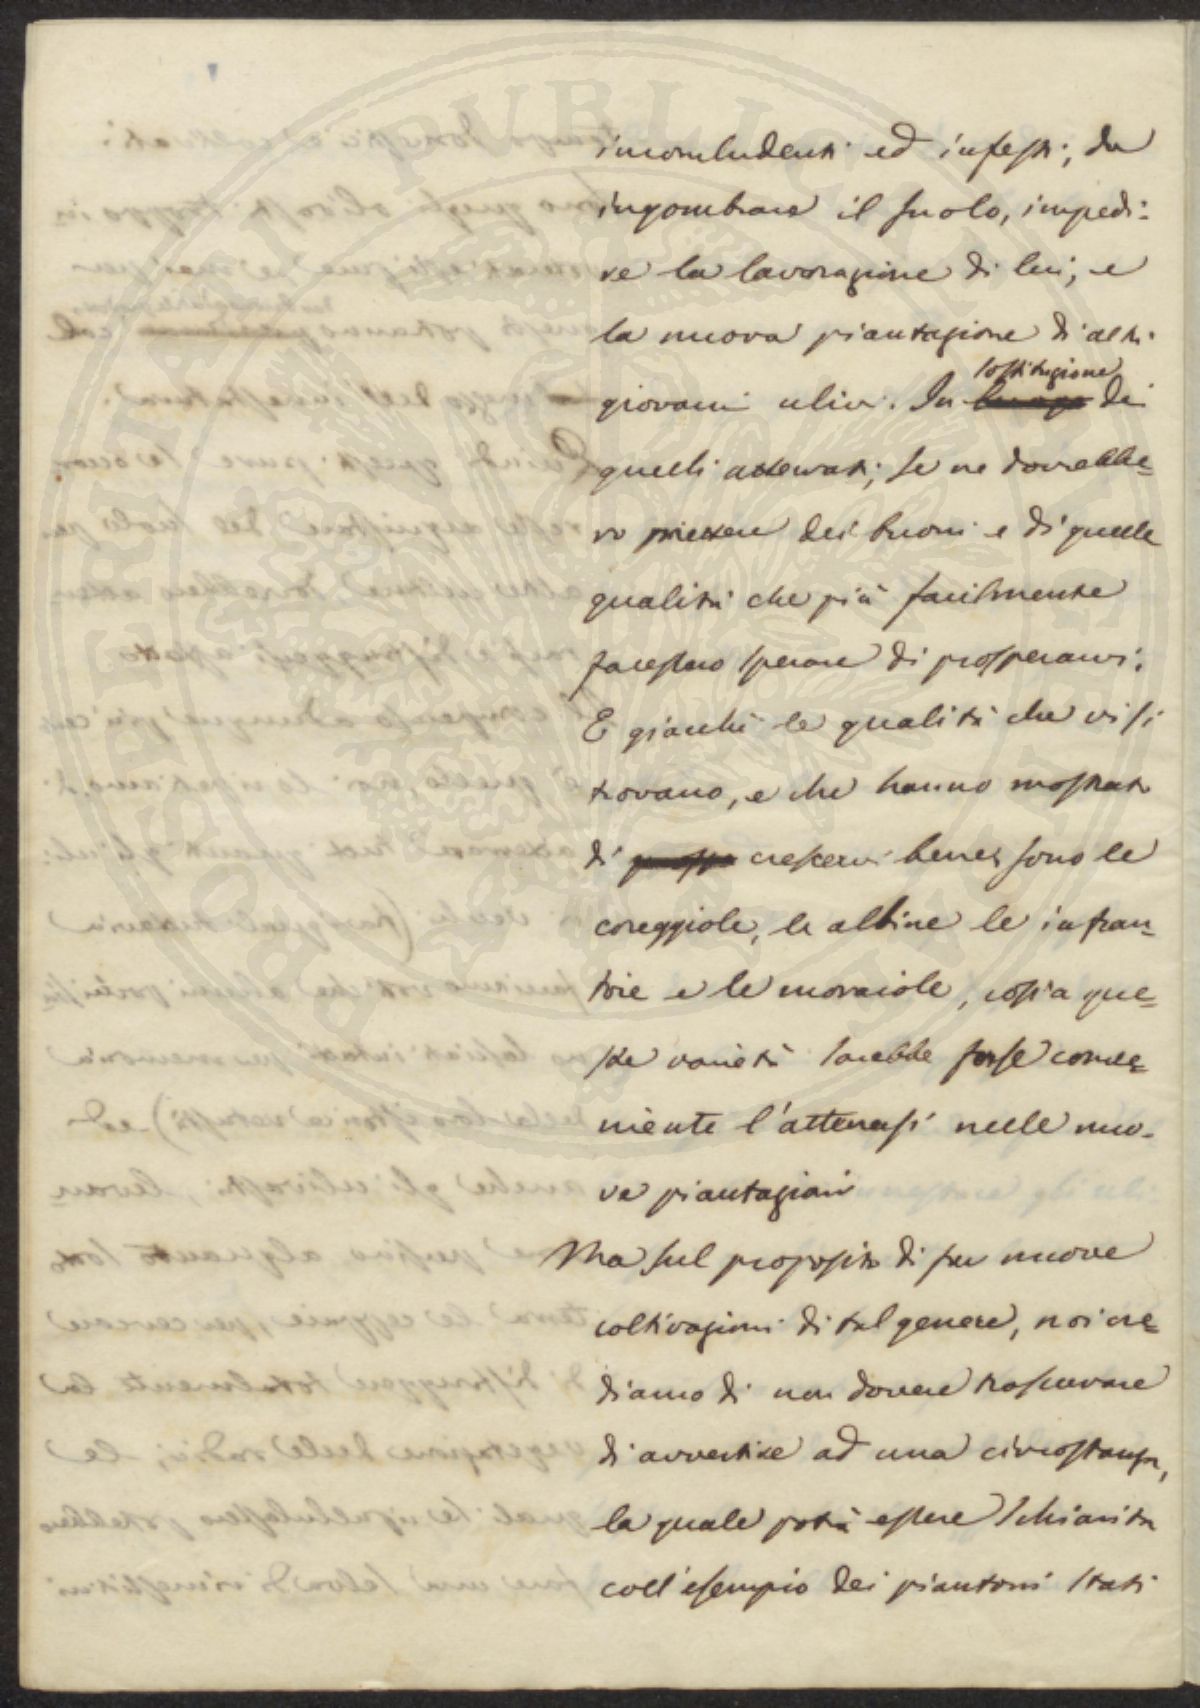 inconcludenti ed infesti, da
ingombrare il suolo, impedi:
re la lavorazione di lui, e
la nuova piantagione di altri
giovani ulivi. In sostituzione di
quelli atterrati; se ne dovrebbe=
ro mettere dei buoni e di quelle
qualità che più facilmente
facessero sperare di prosperarvi:
E giacchè le qualità che vi si
trovano, e che hanno mostrato
di crescervi bene sono le
coreggiole, le albine le infran=
toie e le moraiole, cosi a que=
ste varietà sarebbe forse conve=
niente l'attenersi nelle nuo-
ve piantagioni
Ma sul proposito di far nuove
coltivazioni di tal genere, noi cre=
diamo di non dovere trascurare
di avvertire ad una circostanza,
la quale potrà essere schiarita
coll'esempio dei piantoni stati
PROSPERITATI PUBLICAE